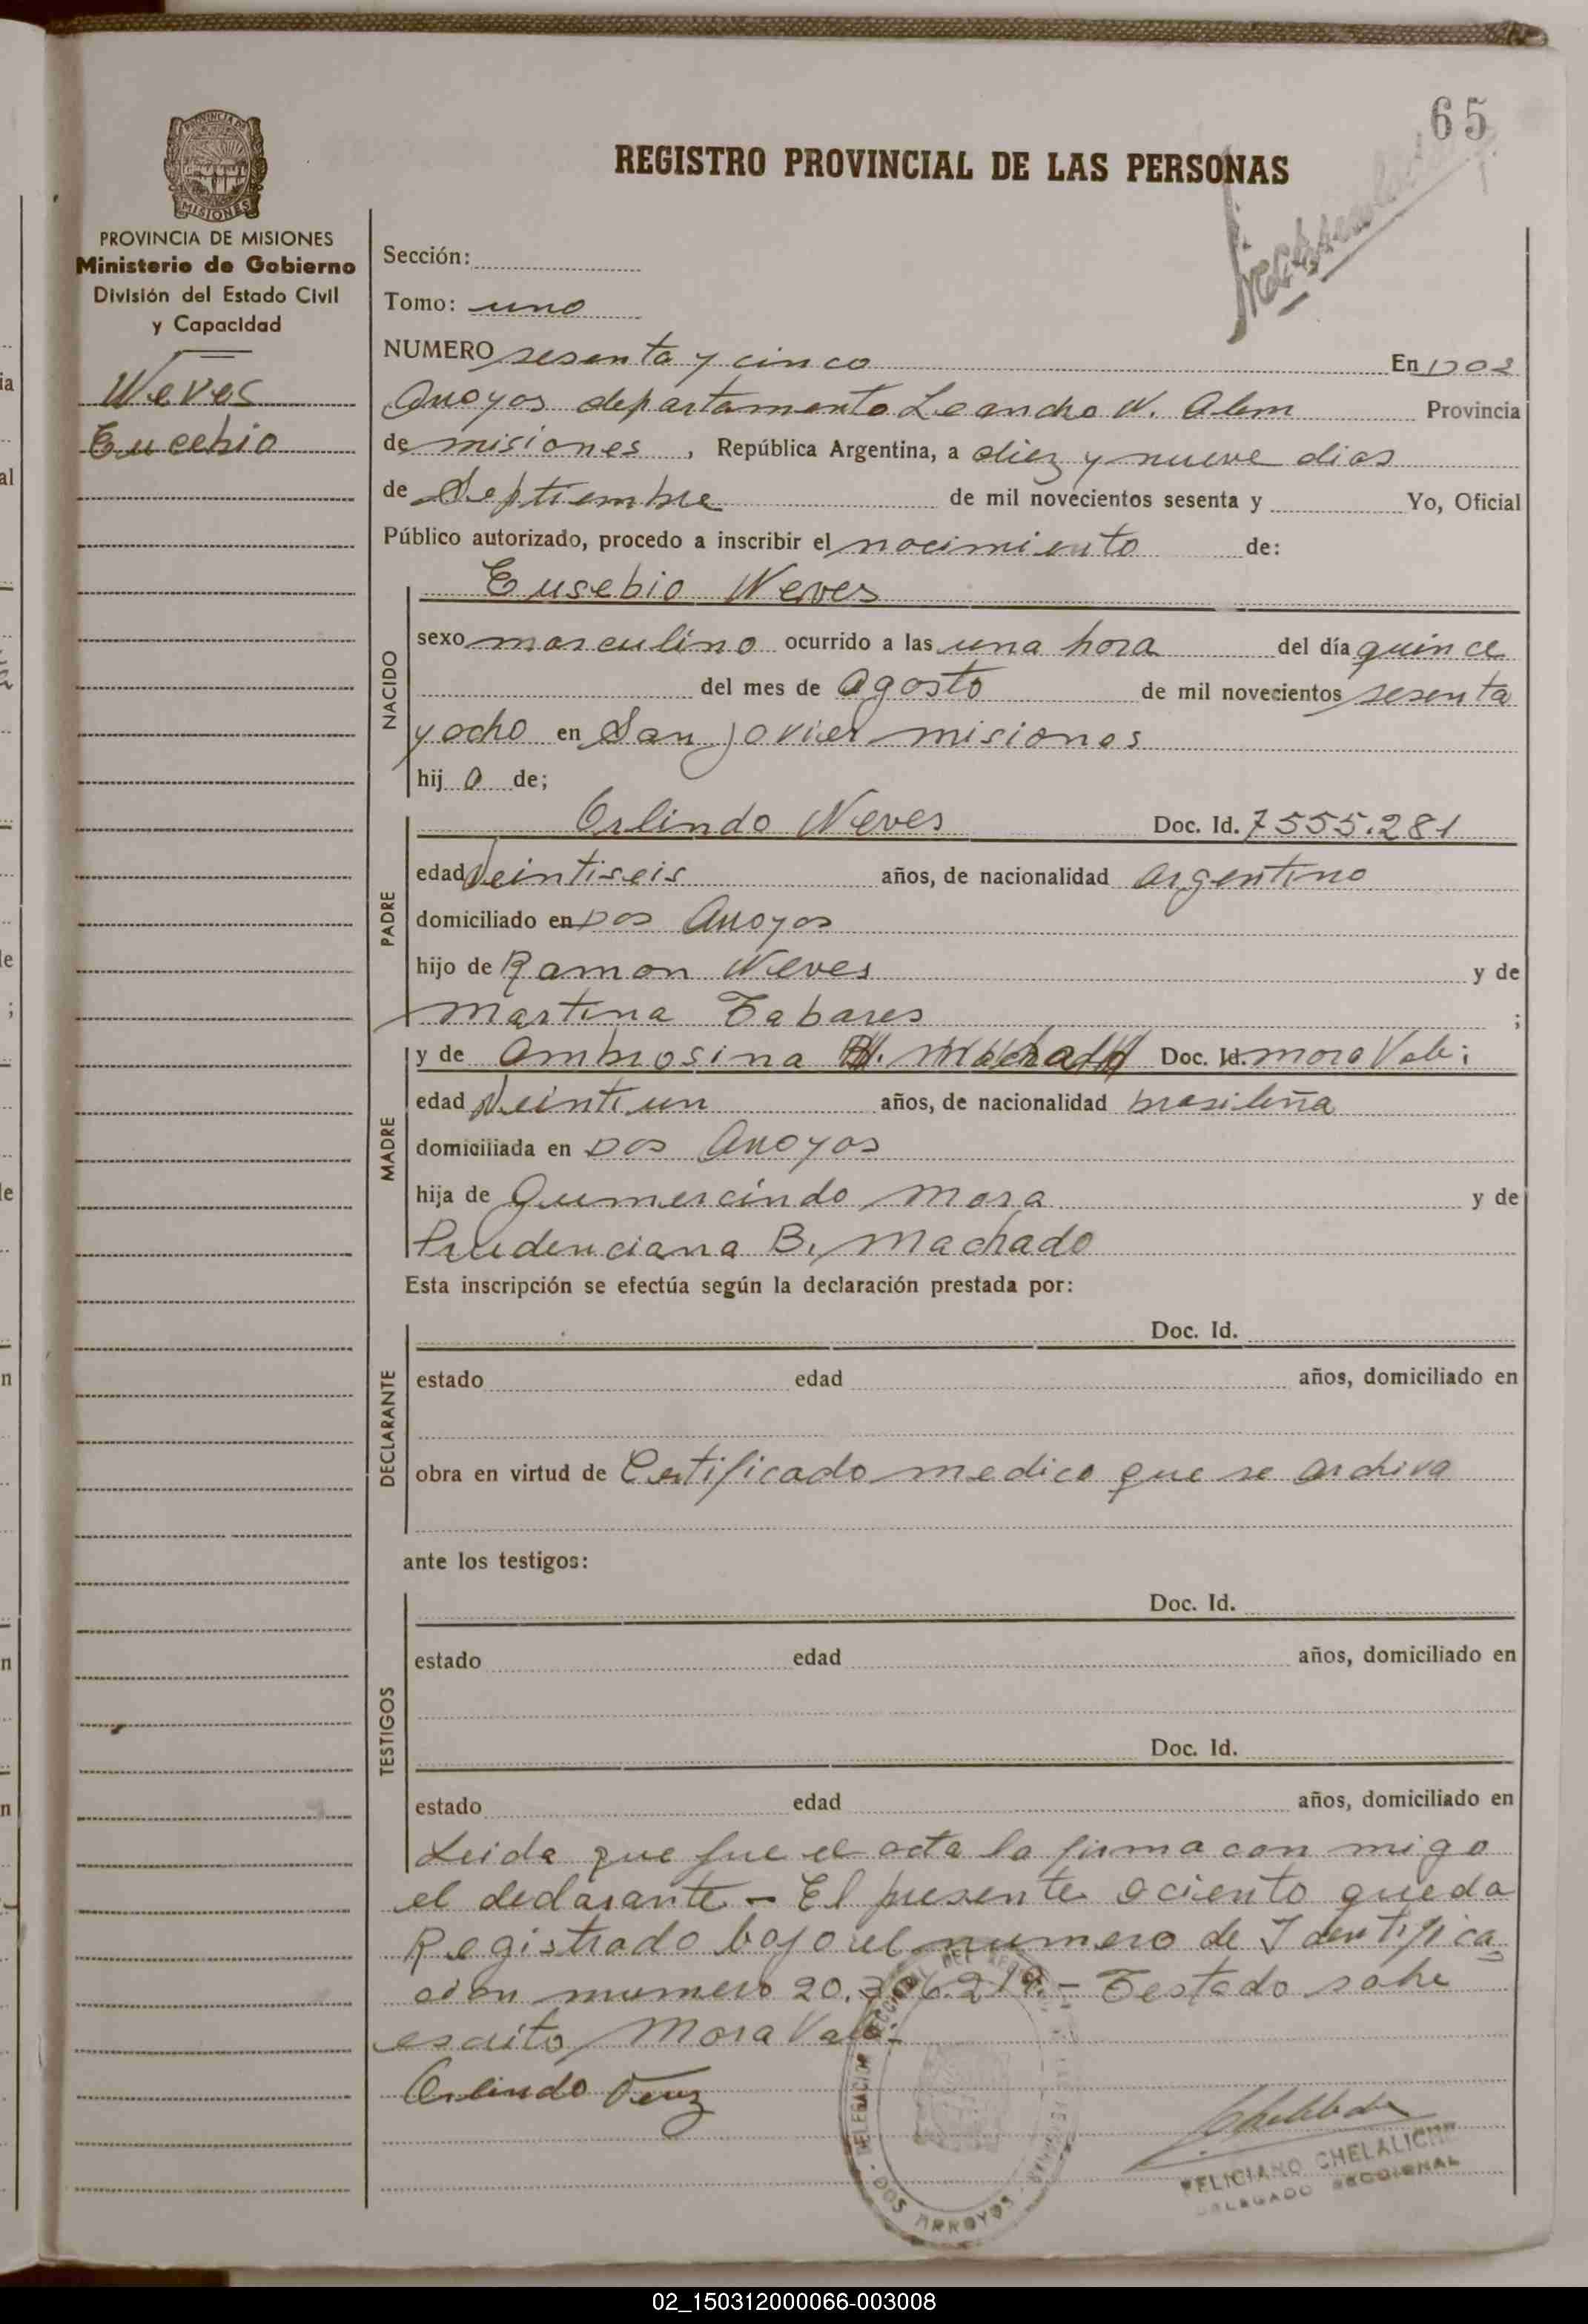 65
REGISTRO PROVINCIAL DE LAS PERSONAS
PROVINCIA DE MISIONES
Ministerio de Gobierno
División del Estado Civil
y Capacidad
Neves
Eucebio
Sección:
Tomo: uno
NUMERO sesenta y cinco En Dos
Arroyos departamento Leandro N. Alem Provincia
de misiones, República Argentina, a diez y nueve dias
de Septiembre de mil novecientos sesenta y Yo, Oficial
Público autorizado, procedo a inscribir el nacimiento de:
Eusebio Neves
NACIDO
sexo masculino ocurrido a las una hora del día quince
del mes de Agosto de mil novecientos sesenta
y ocho en San Javier misiones
hij o de;
PADRE
Orlindo Neves Doc. Id. 7555.281
edad Veintiseis años, de nacionalidad argentino
domiciliado en Dos Arroyos
hijo de Ramon Neves y de
Martina Tabares ;
MADRE
y de Ambrosina Machado Doc. Id. mora Vale;
edad Veintiun años, de nacionalidad brasileña
domiciliada en Dos Arroyos
hija de Gumercindo Mora y de
Prudenciana B. Machado
Esta inscripción se efectúa según la declaración prestada por:
DECLARANTE
Doc. Id.
estado edad años, domiciliado en
obra en virtud de Certificado medico que se archiva
ante los testigos:
TESTIGOS
Doc. Id.
estado edad años, domiciliado en
Doc. Id.
estado edad años, domiciliado en
Leida que fue el acta la firma con migo
el declarante - El presente aciento queda
Registrado bajo el numero de Identifica
cion numero 20.306.219.- Testado sobre
escrito Mora Vale:
Orlindo
DELEGACION DOS ARROYOS
FELICIANO CHELALICHE
DELEGADO SECCIONAL
02_150312000066-003008